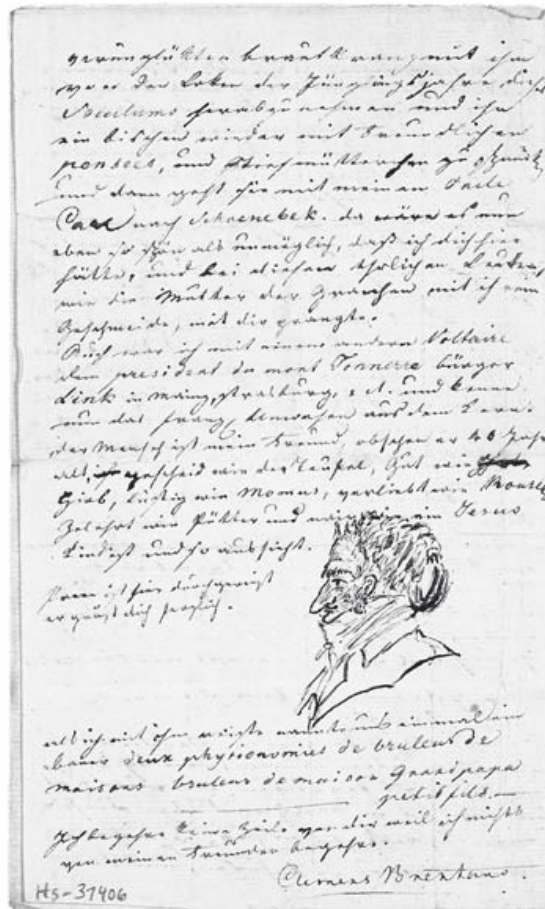 verunglükten brautkranz mit ihm
von den Loken der Jünglingsjahre dieses
Seculums herabzunehmen und ihn
ein bischen wieder mit freundlichen
pensees, und Stiefmütterchen zu
und dann geht sie mit meinem Onkle
Carl nach Schoenebek. da wäre es nun
eben so schön als unmöglich, daß ich dich hier
hätte, und bei diesen ehrlichen Leuten,
wie die Mutter der Grachen mit ihrem
Geschmeide, mit dir prangte.
Auch war ich mit einem andern Voltaire
dem president du mont Tonnerre bürger
Link in Mainz, Strasburg, und kenne
nun das franz, Unwesen aus dem Kern.
der Mensch ist mein Freund, obschon er 46 Jahr
alt, gescheid wie der Teufel, Gut wie
Hiob, lustig wie Momus, verliebt wie Rousseau
Gelehrt wie Pütter und naiv wie ein Jesus
Kindchen und so aussieht.
ist hier durchgereist
er grüst dich herzlich.
als ich mit ihm reiste nannte uns einmal ein
bauer deux physionomies de bruleurs de
maisons. bruleur de maison Grandpapa
petitfils.
Ich begehre keine Zeile von dir weil ich nichts
von meinen Freunden begehre.
Clemens Brentano.
Hs-37406